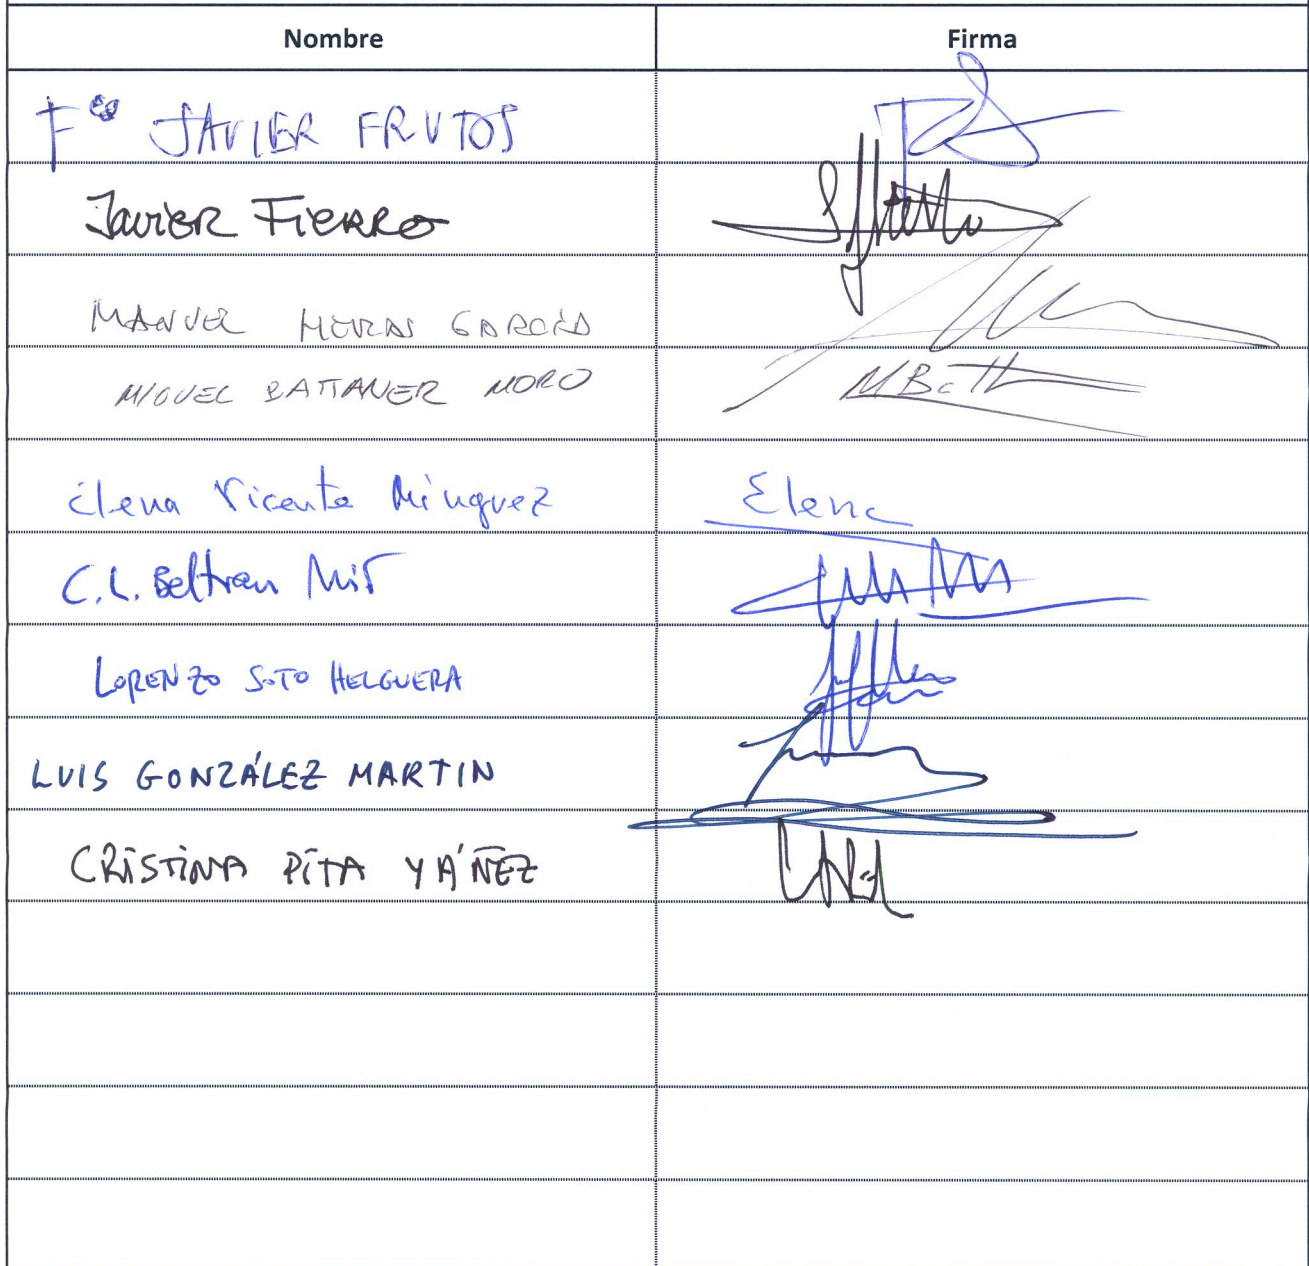 Nombre Firma
Fco JAVIER FRUTOS
Javier Fierro
MANUEL HERAS GARCÍA
MIGUEL BATTANER MORO MBatt
Elena Vicente Mínguez Elena
C.L. Beltran Mir
LORENZO SOTO HELGUERA
LUIS GONZÁLEZ MARTIN
CRISTINA PITA YÁÑEZ